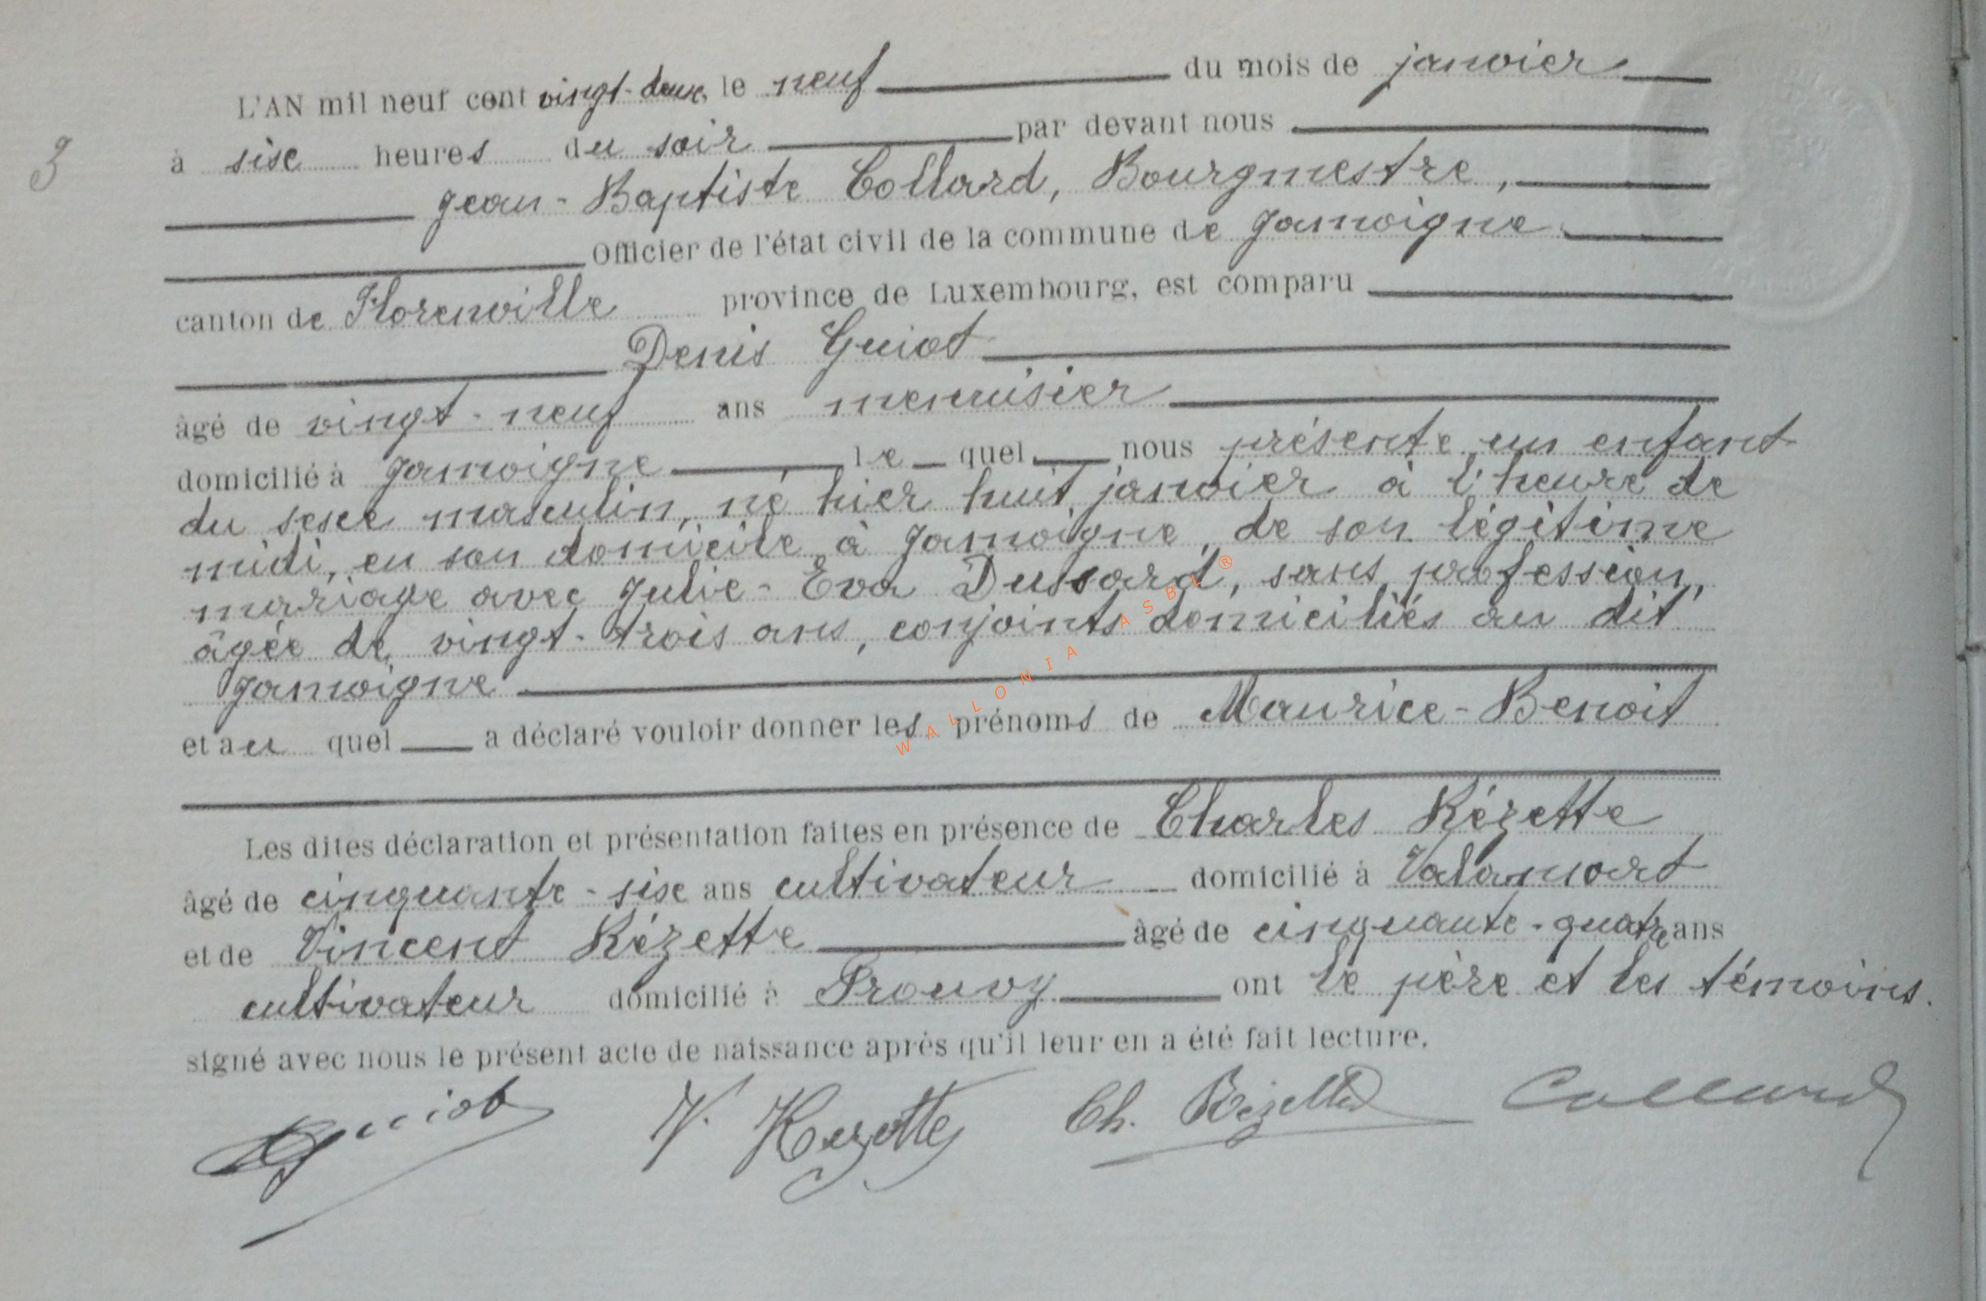 3
L'AN mil neuf cent vingt-deux, le neuf du mois de janvier
à six heures du soir par devant nous
Jean-Baptiste Collard, Bourgmestre,
Officier de l'état civil de la commune de Jamoigne
canton de Florenville province de Luxembourg, est comparu
Denis Guiot
âgé de vingt-neuf ans menuisier
domicilié à Jamoigne le quel nous présente un enfant
du sexe masculin, né hier huit janvier à l'heure de
midi, en son domicile à Jamoigne, de son légitime
mariage avec Julie-Eva Dussard, sans profession,
âgée de vingt-trois ans, conjoints domiciliés au dit
Jamoigne
et au quel a déclaré vouloir donner les prénoms de Maurice-Benoit
Les dites déclaration et présentation faites en présence de Charles Rézette
âgé de cinquante-six ans cultivateur domicilié à Valansart
et de Vincent Rézette âgé de cinquante-quatre ans
cultivateur domicilié à Prouvy ont le père et les témoins
signé avec nous le présent acte de naissance après qu'il leur en a été fait lecture.
Guiot V. Rezette Ch. Rézette Collard
WALLONIA ASBL ®